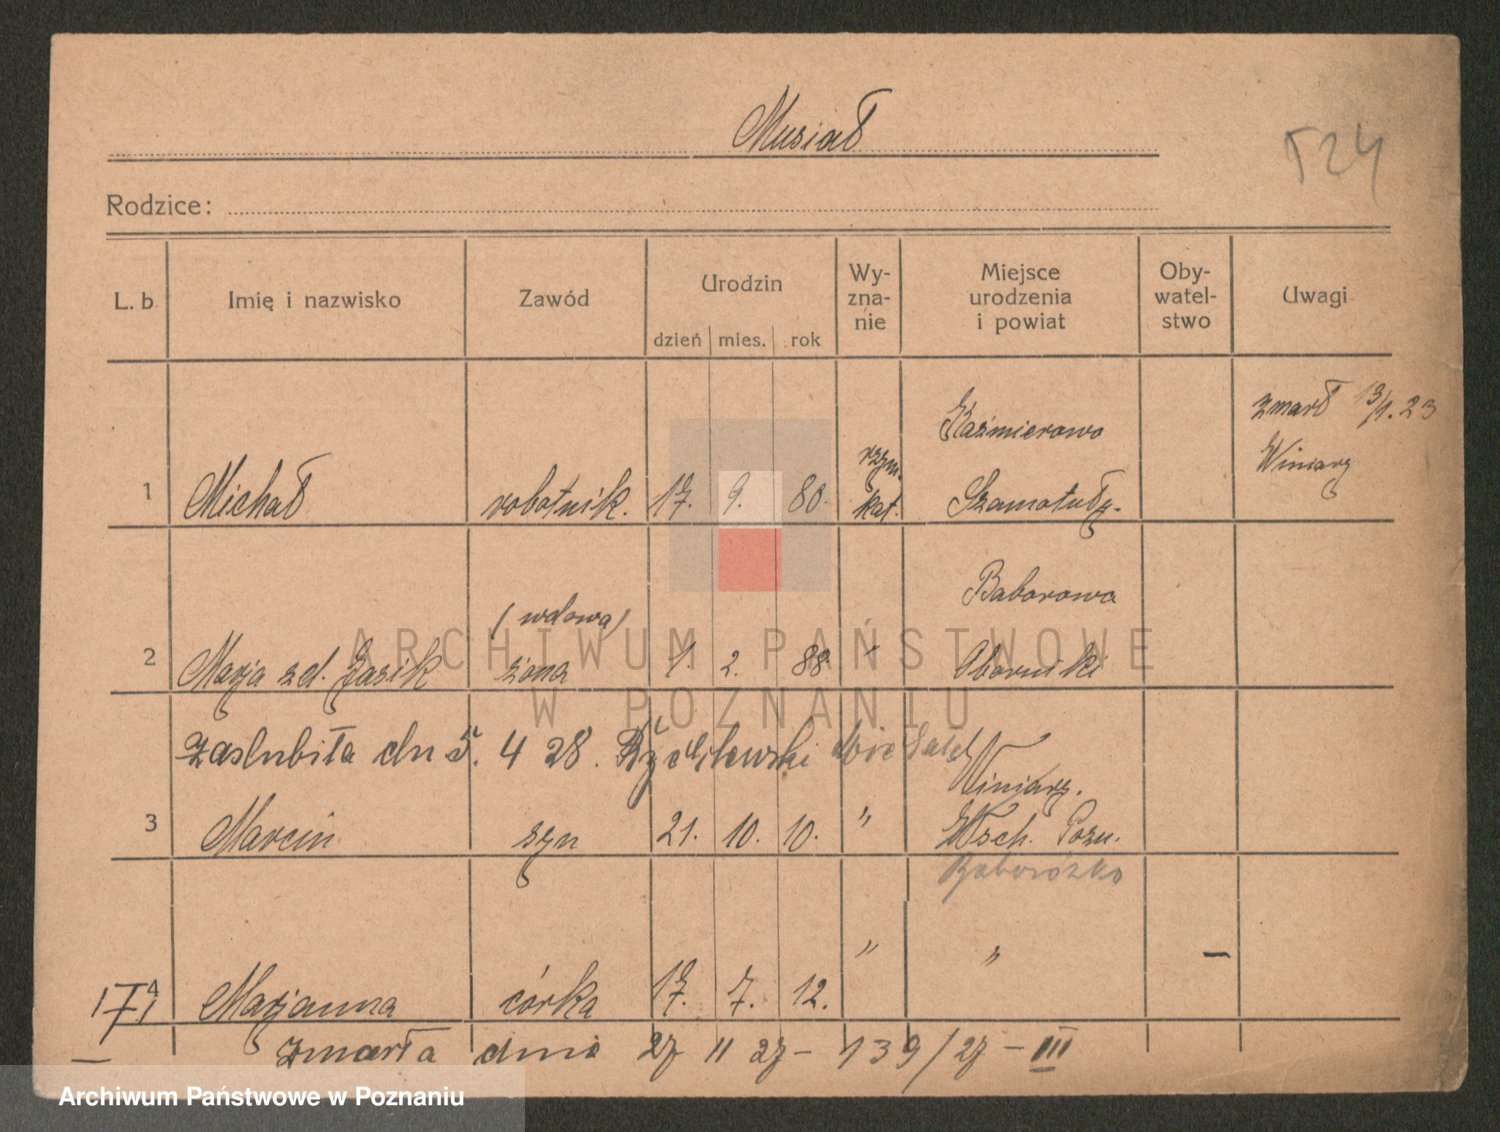 Musiał
524
Rodzice:
L. b. Imię i nazwisko Zawód Urodzin dzień mies. rok Wy-zna-nie Miejsce urodzenia i powiat Oby-watel-stwo Uwagi
Kaźmierowo zmarł 13/1.23
1 Michał robotnik. 17. 9. 80. rzym. kat. Szamotuły. Winiary
(wdowa) Baborowo
2 Marja zd. Łasik żona 1 2. 88. " Oborniki
zaślubiła dn 5. 4 28.
Winiary.
3 Marcin syn 21. 10. 10. " Wsch. Pozn.
Baborówko
4 Marjanna córka 17. 7. 12. " " —
171
zmarła dnia 27 II 27 – 139/27 – III
ARCHIWUM PAŃSTWOWE
W POZNANIU
Archiwum Państwowe w Poznaniu